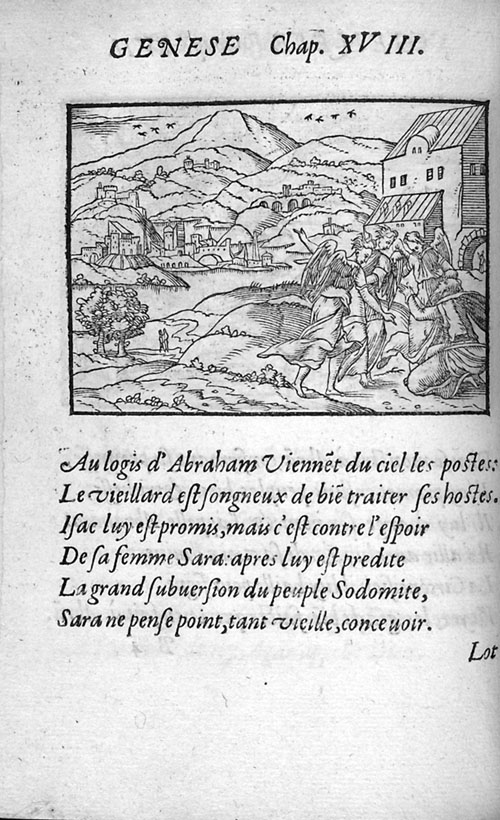 GENESE Chap. XVIII.
Au logis d'Abraham Viennẽt du ciel les postes:
Le vieillard est songneux de biẽ traiter ses hostes.
Isac luy est promis, mais c'est contre l'espoir
De sa femme Sara: apres luy est predite
La grand subuersion du peuple Sodomite,
Sara ne pense point, tant vieille, conceuoir.
Lot